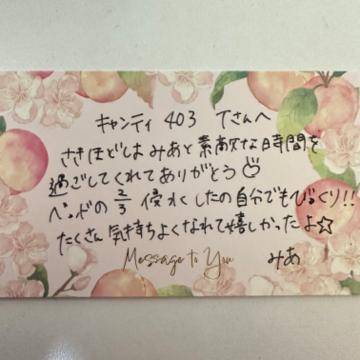 キャンティ 403 Tさんへ
さきほどは みあと素敵な時間を
過ごしてくれてありがとう
ベッドの 2/3 侵水したの自分でもびっくり!!
たくさん気持ちよくなれて嬉しかったよ☆
Message to You みあ